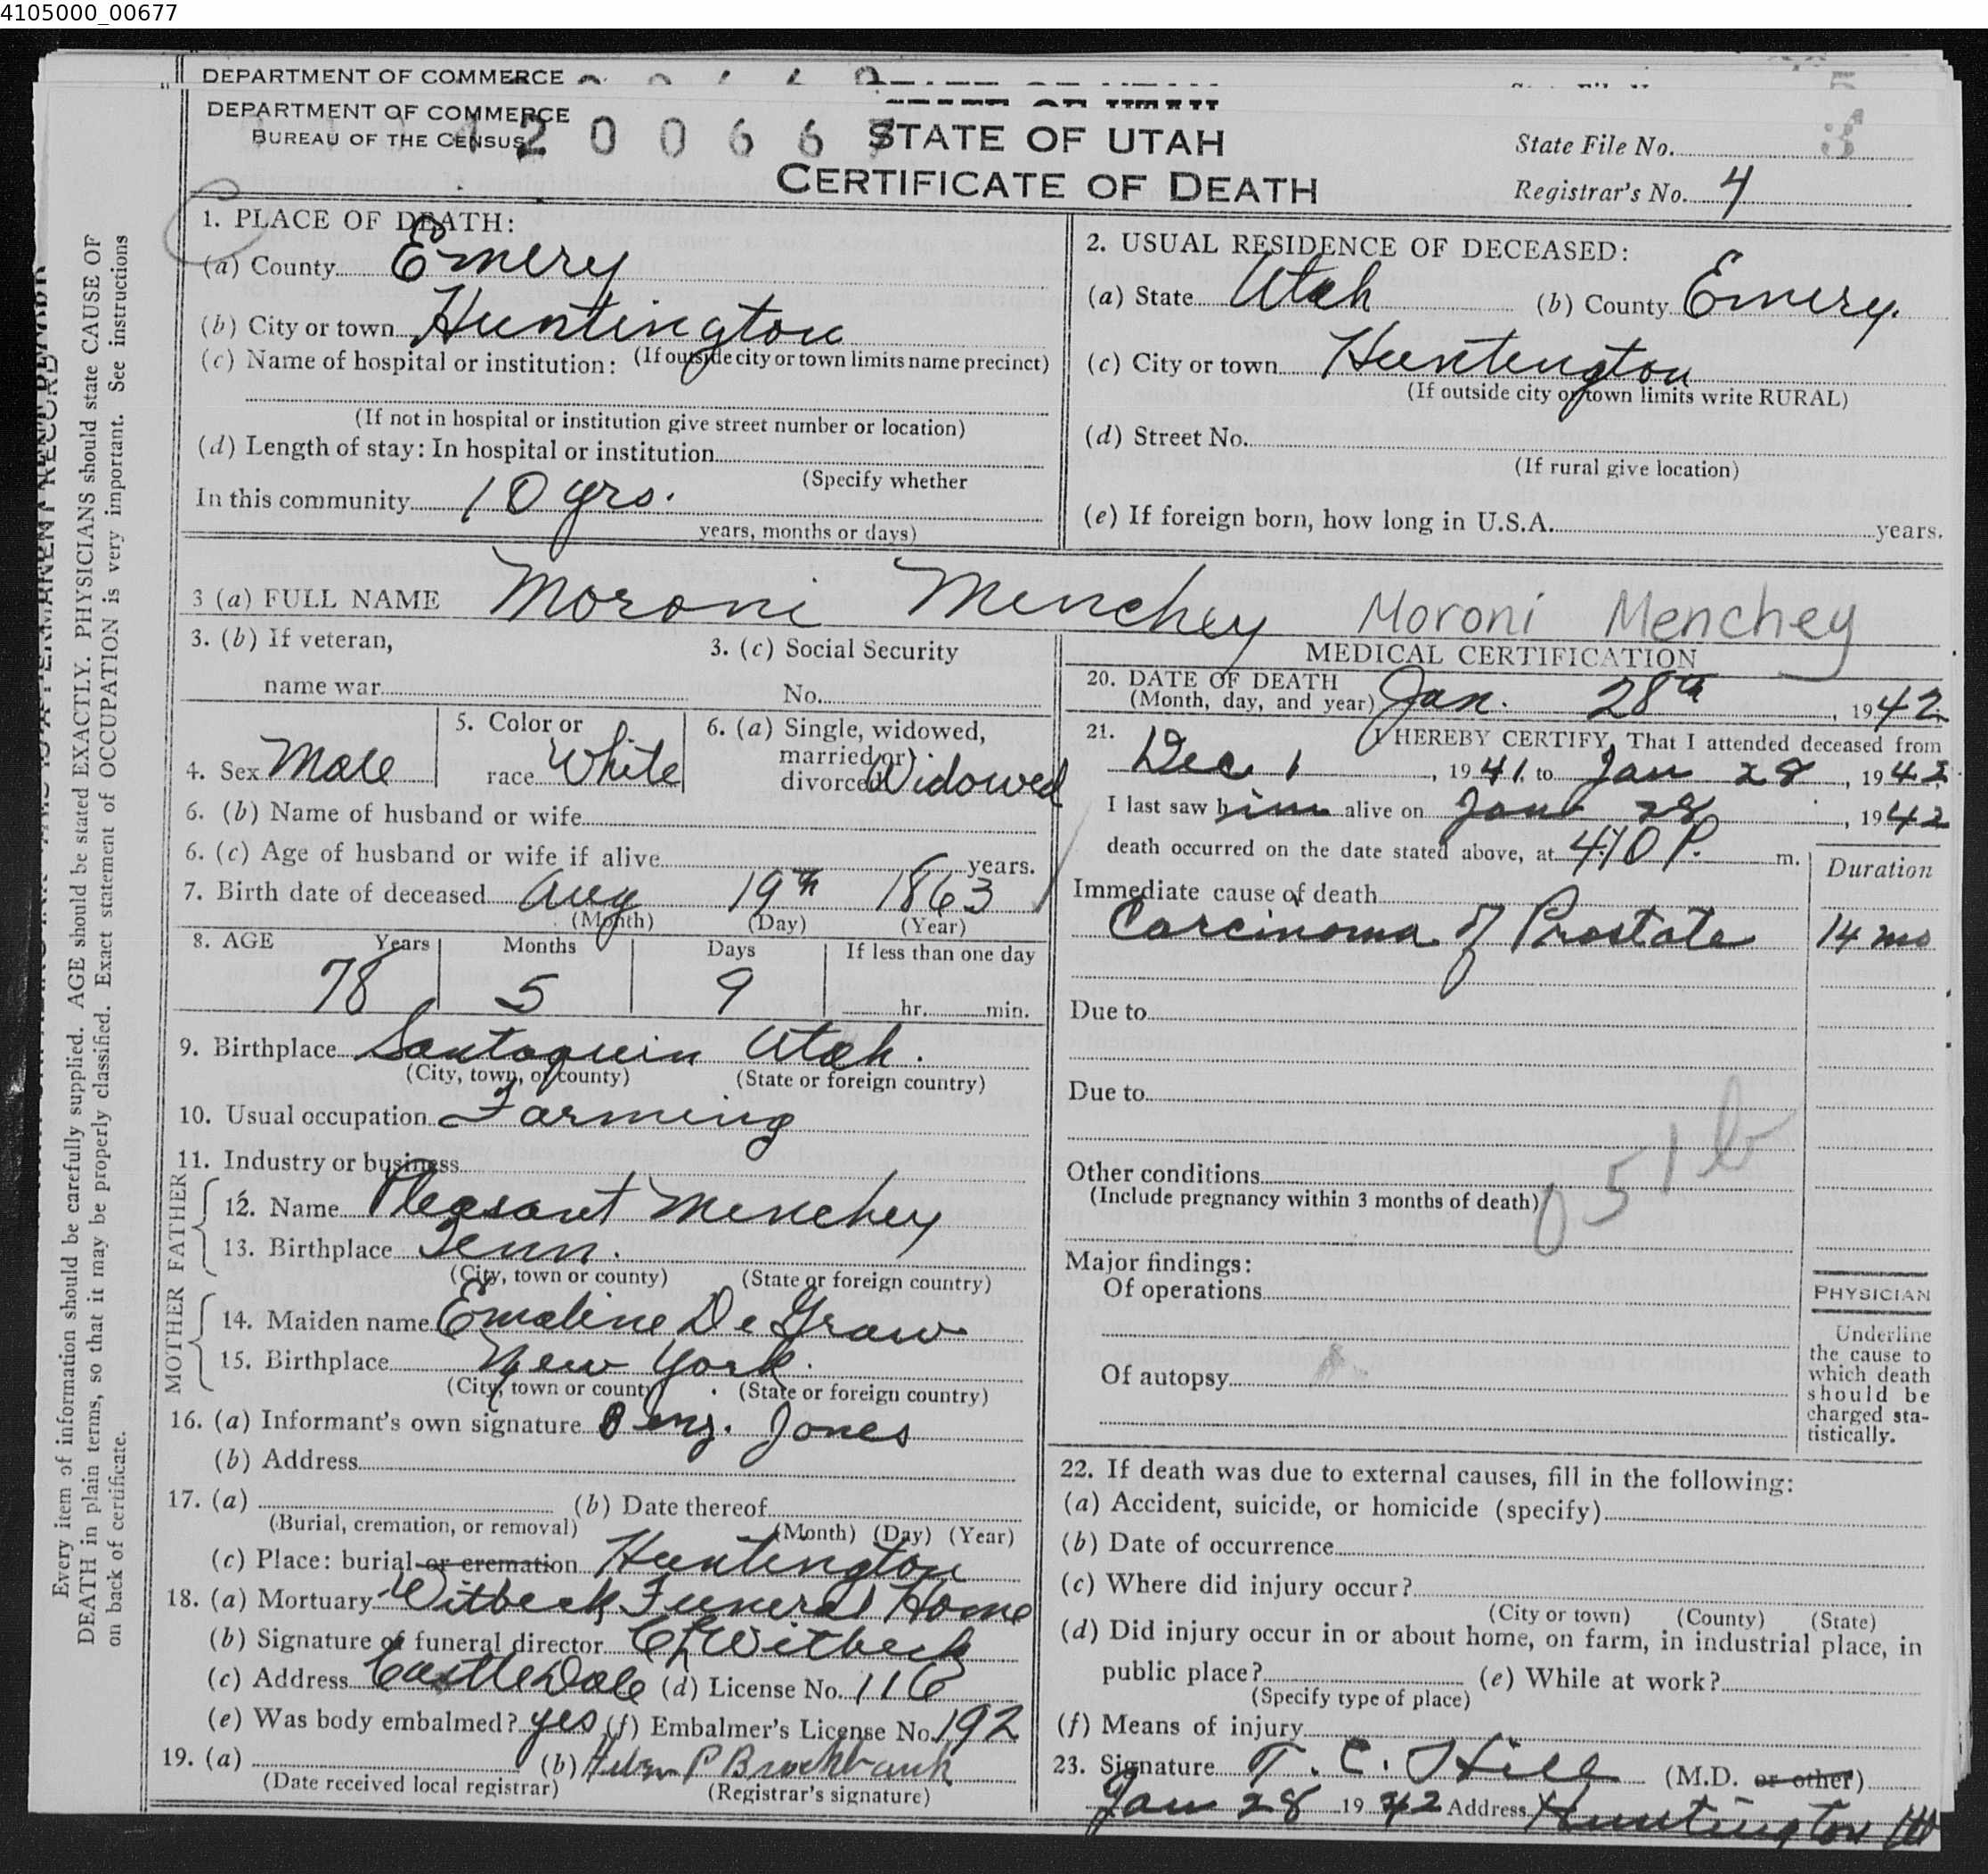 4105000_00677
DEPARTMENT OF COMMERCE
DEPARTMENT OF COMMERCE
BUREAU OF THE CENSUS
STATE OF UTAH
CERTIFICATE OF DEATH
State File No. 3
Registrar's No. 4
1. PLACE OF DEATH:
(a) County Emery
(b) City or town Huntington
(c) Name of hospital or institution: (If outside city or town limits name precinct)
(If not in hospital or institution give street number or location)
(d) Length of stay: In hospital or institution
(Specify whether
In this community 10 yrs.
years, months or days)
2. USUAL RESIDENCE OF DECEASED:
(a) State Utah (b) County Emery.
(c) City or town Huntington
(If outside city or town limits write RURAL)
(d) Street No.
(If rural give location)
(e) If foreign born, how long in U.S.A. years.
3 (a) FULL NAME Moroni Menchey Moroni Menchey
3. (b) If veteran,
name war
3. (c) Social Security
No.
4. Sex Male
5. Color or
race White
6. (a) Single, widowed,
married or
divorced Widowed
6. (b) Name of husband or wife
6. (c) Age of husband or wife if alive years.
7. Birth date of deceased Aug 19th 1863
(Month) (Day) (Year)
8. AGE Years Months Days If less than one day
78 5 9 hr. min.
9. Birthplace Santaquin Utah.
(City, town, or county) (State or foreign country)
10. Usual occupation Farming
11. Industry or business
FATHER
12. Name Pleasant Menchey
13. Birthplace Tenn.
(City, town or county) (State or foreign country)
MOTHER
14. Maiden name Emaline De Graw
15. Birthplace New York.
(City, town or county) (State or foreign country)
16. (a) Informant's own signature Benj. Jones
(b) Address
17. (a) (b) Date thereof
(Burial, cremation, or removal) (Month) (Day) (Year)
(c) Place: burial or cremation Huntington
18. (a) Mortuary Witbeck Funeral Home
(b) Signature of funeral director CL Witbeck
(c) Address Castle Dale (d) License No. 116
(e) Was body embalmed? yes (f) Embalmer's License No. 192
19. (a) (b) P Brockbank
(Date received local registrar) (Registrar's signature)
MEDICAL CERTIFICATION
20. DATE OF DEATH
(Month, day, and year) Jan. 28th, 1942
21. I HEREBY CERTIFY, That I attended deceased from
Dec 1, 1941 to Jan 28, 1942
I last saw him alive on Jan 28, 1942
death occurred on the date stated above, at 4:10 P. m.
Duration
Immediate cause of death
Carcinoma of Prostate 14 mo
Due to
Due to
Other conditions
(Include pregnancy within 3 months of death)
051b
Major findings:
Of operations
Of autopsy
PHYSICIAN
Underline
the cause to
which death
should be
charged sta-
tistically.
22. If death was due to external causes, fill in the following:
(a) Accident, suicide, or homicide (specify)
(b) Date of occurrence
(c) Where did injury occur?
(City or town) (County) (State)
(d) Did injury occur in or about home, on farm, in industrial place, in
public place? (e) While at work?
(Specify type of place)
(f) Means of injury
23. Signature T. C. Hill (M.D. or other)
Jan 28 1942 Address Huntington
Every item of information should be carefully supplied. AGE should be stated EXACTLY. PHYSICIANS should state CAUSE OF
DEATH in plain terms, so that it may be properly classified. Exact statement of OCCUPATION is very important. See instructions
on back of certificate.